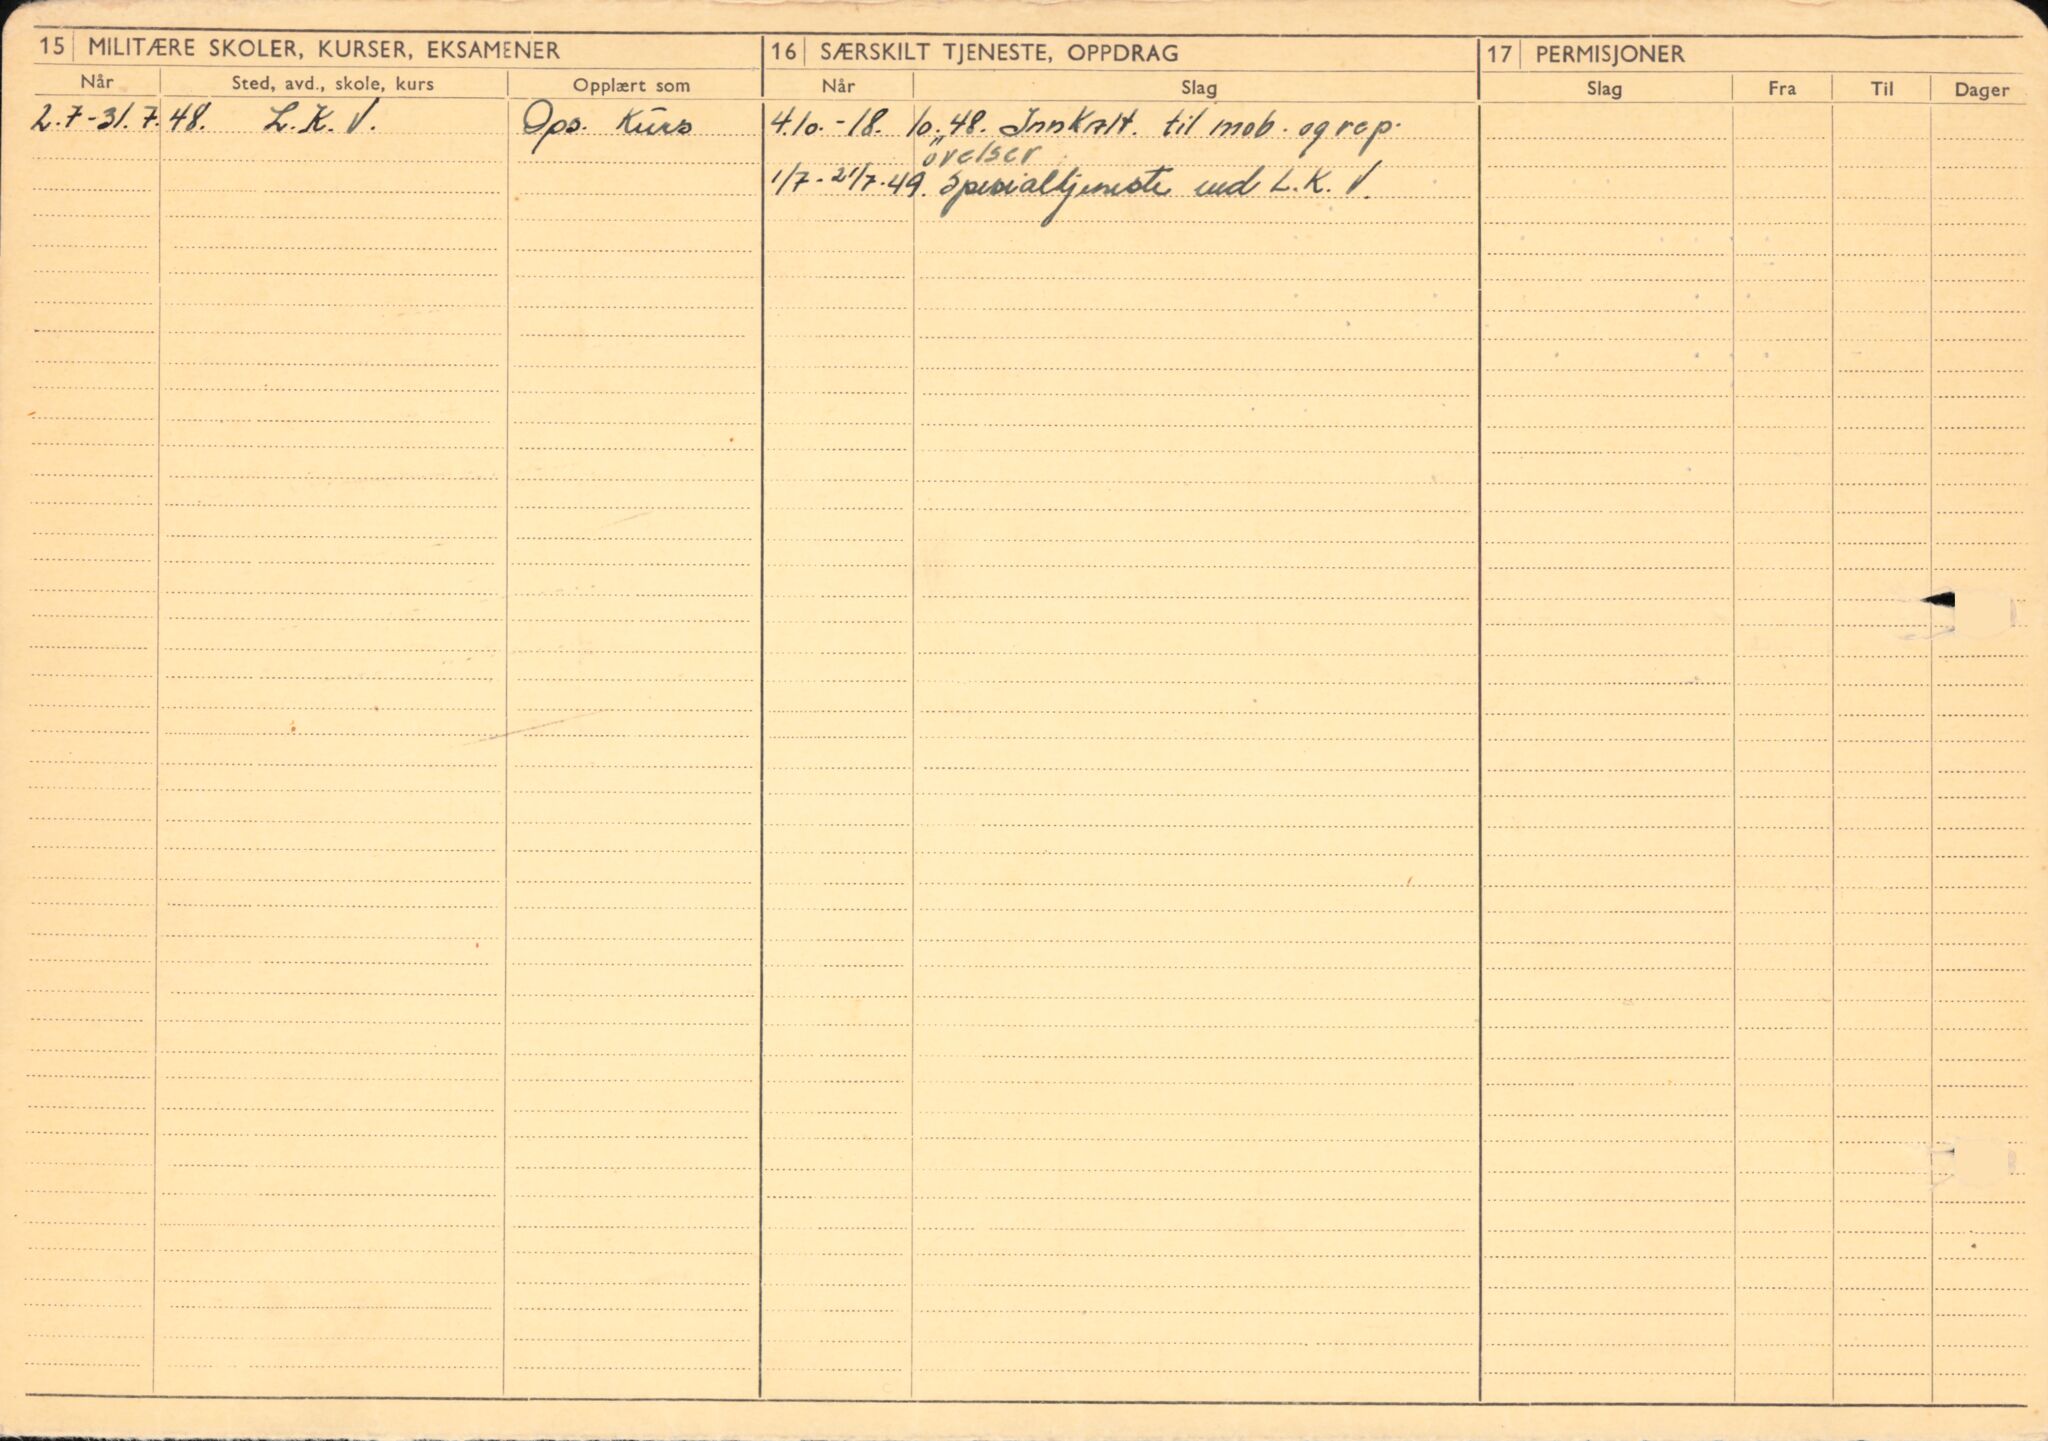 15 MILITÆRE SKOLER, KURSER, EKSAMENER
Når Sted, avd., skole, kurs Opplært som
2.7-31.7.48. L.K.V. Ops. Kurs
16 SÆRSKILT TJENESTE, OPPDRAG
Når Slag
4.10.-18.10.48. Innkalt. til mob. og rep.
øvelser
1/7-21/7-49. Spesialtjeneste ved L.K.V.
17 PERMISJONER
Slag Fra Til Dager